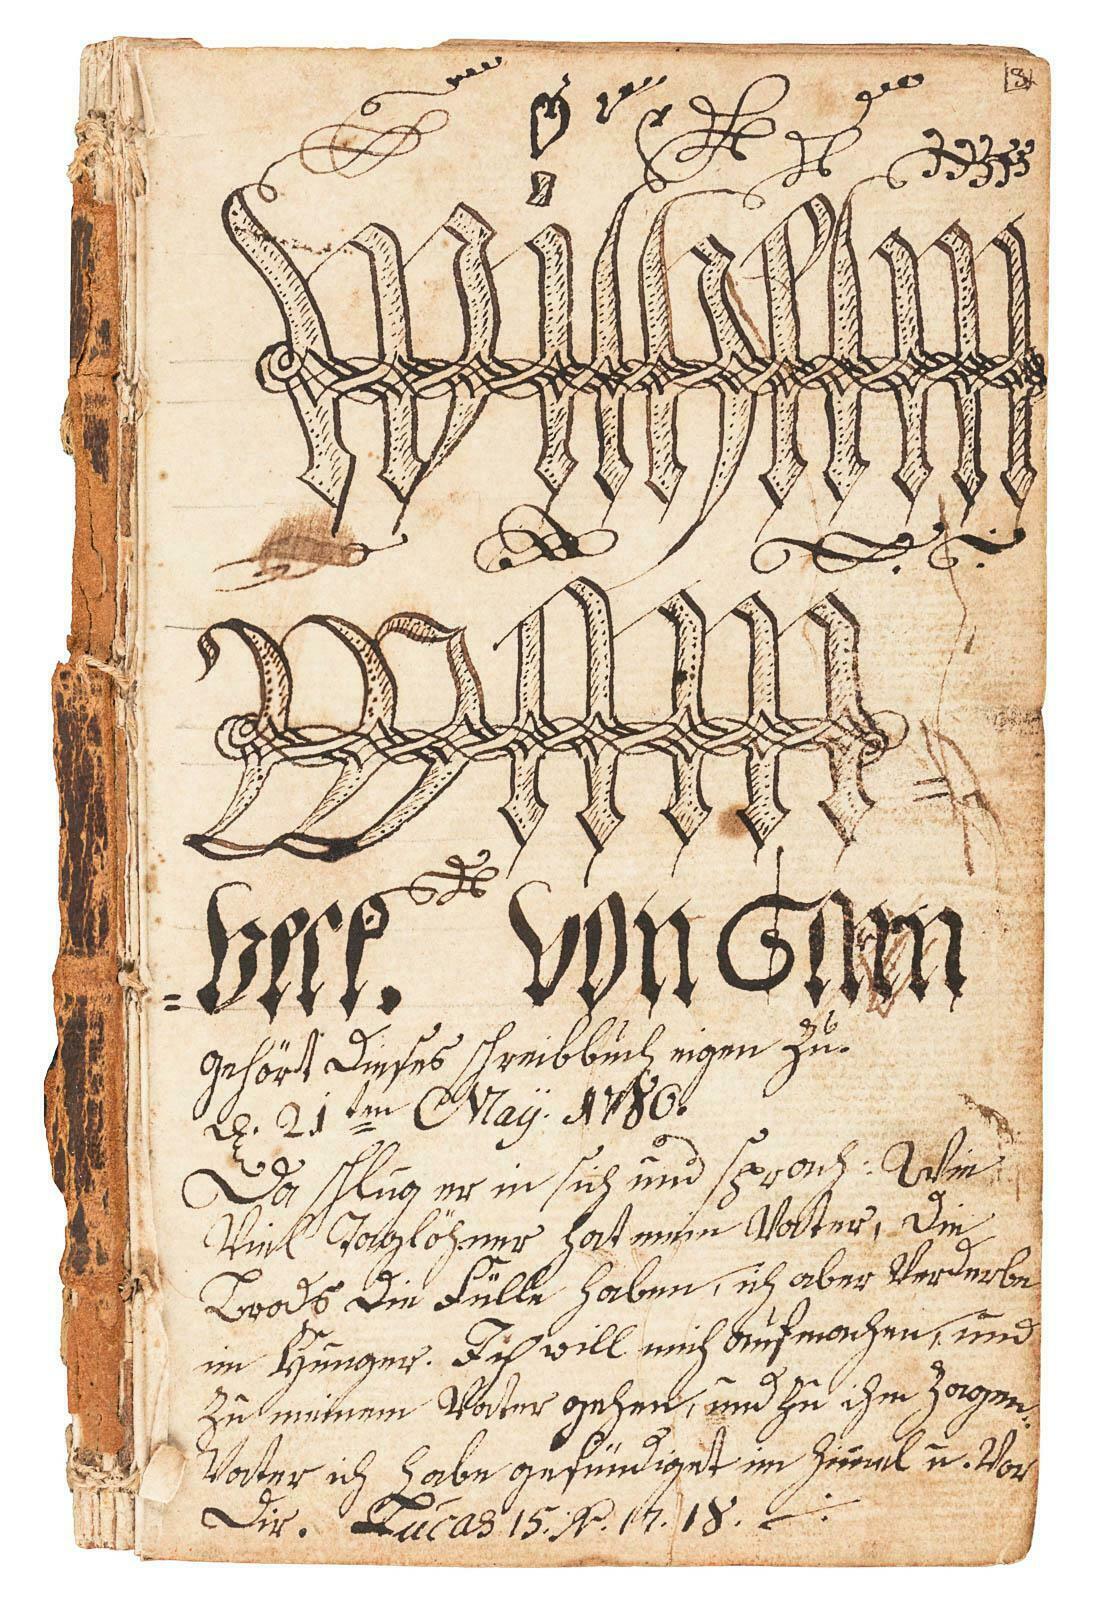 3
Wilhelm
=beck. von
gehört dieses schreibbuch eigen zu.
d. 21ten May. 1780.
Da schlug er in sich und sprach: Wie
Viel Taglöhner hat mein Vater, Die
Brods Die Fülle haben, ich aber Verderbe
im Hunger. Ich will mich aufmachen, und
zu meinem Vater gehen, und zu ihm sagen:
Vater ich habe gesündiget im Himel u. Vor
Dir. Lucas 15. V. 17. 18.